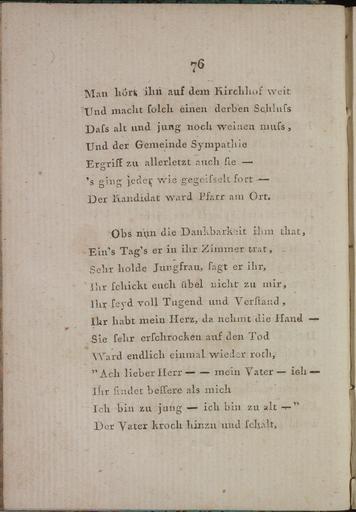 76
Man hört ihn auf dem Kirchhof weit
Und macht ſolch einen derben Schluſs
Daſs alt und jung noch weinen muſs,
Und der Gemeinde Sympathie
Ergriff zu allerletzt auch ſie —
's ging jeder wie gegeiſselt fort —
Der Kandidat ward Pfarr am Ort.
Obs nun die Dankbarkeit ihm that,
Ein's Tag's er in ihr Zimmer trat,
Sehr holde Jungfrau, ſagt er ihr,
Ihr ſchickt euch übel nicht zu mir,
Ihr ſeyd voll Tugend und Verſtand,
Ihr habt mein Herz, da nehmt die Hand —
Sie ſehr erſchrocken auf den Tod
Ward endlich einmal wieder roth,
"Ach lieber Herr — — mein Vater — ich —
Ihr findet beſſere als mich
Ich bin zu jung — ich bin zu alt —"
Der Vater kroch hinzu und ſchalt,